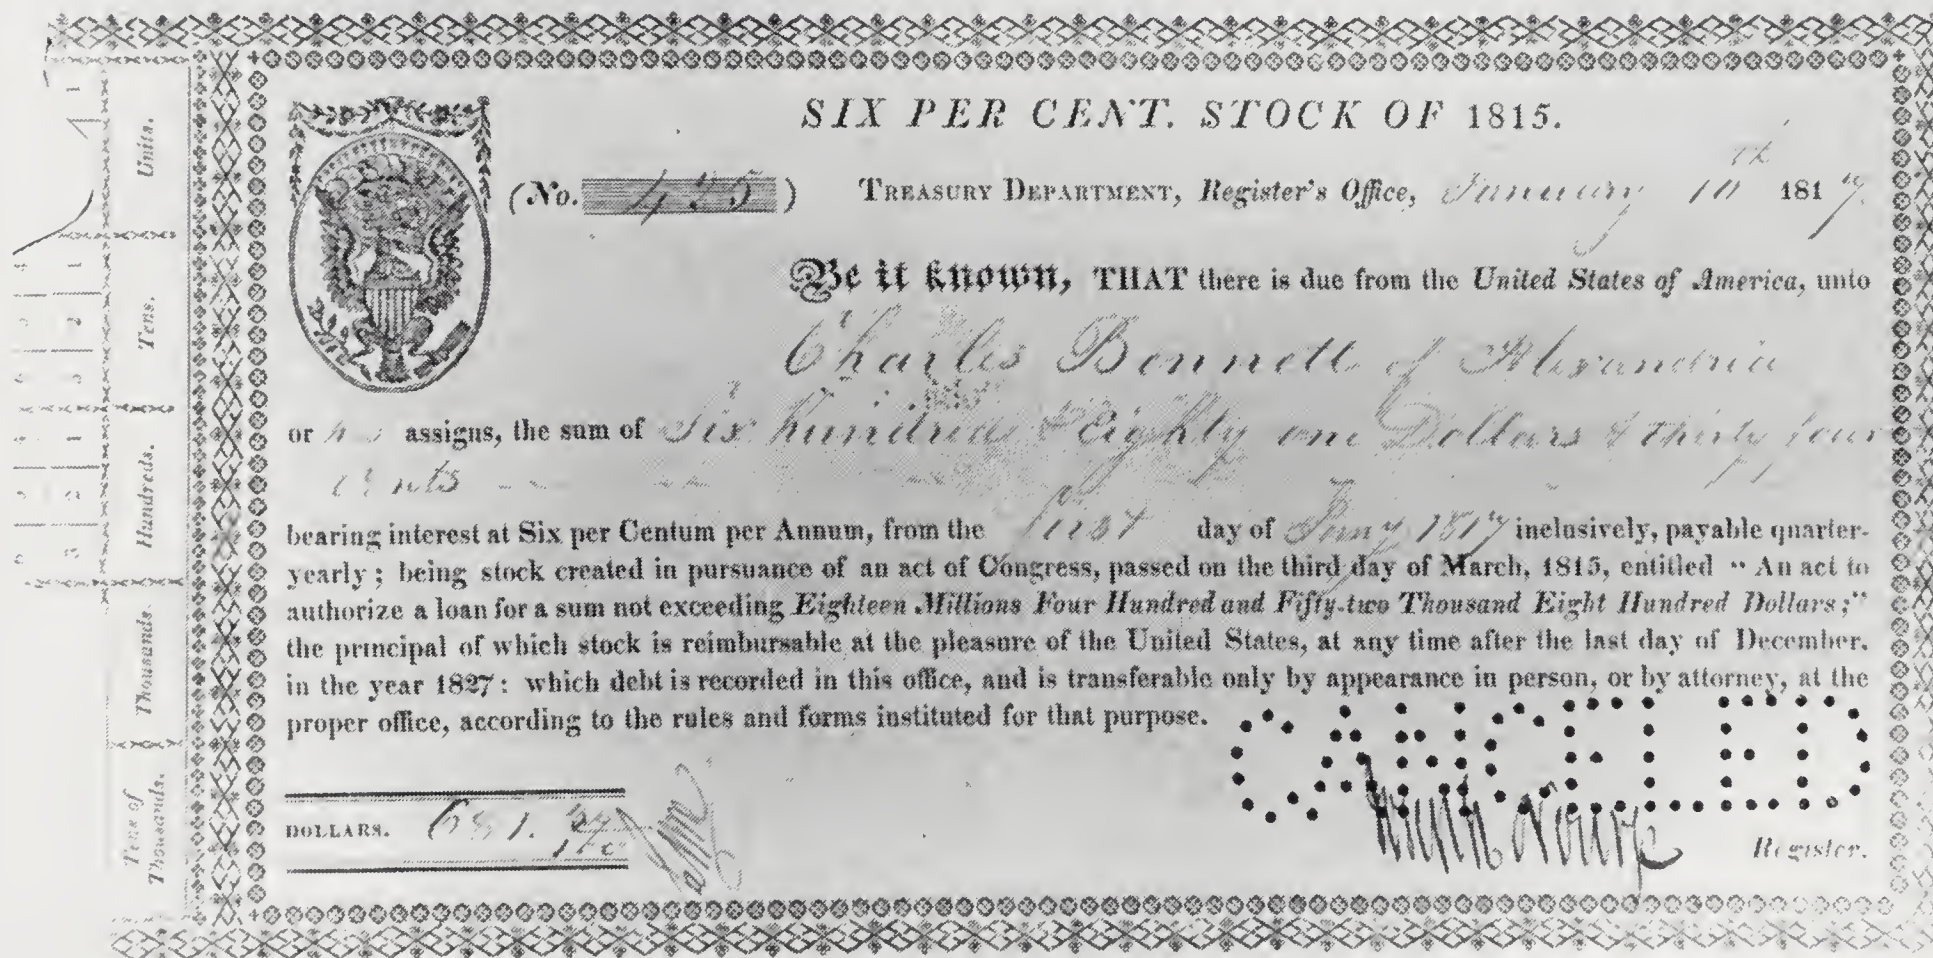 SIX PER CENT. STOCK OF 1815.
(No. 425) TREASURY DEPARTMENT, Register's Office, January 10th 1817
Be it known, THAT there is due from the United States of America, unto
Charles Bennett of Alexandria
or his assigns, the sum of Six hundred & Eighty one Dollars & thirty four
Cents
bearing interest at Six per Centum per Annum, from the first day of Jany 1817 inclusively, payable quarter-
yearly; being stock created in pursuance of an act of Congress, passed on the third day of March, 1815, entitled "An act to
authorize a loan for a sum not exceeding Eighteen Millions Four Hundred and Fifty-two Thousand Eight Hundred Dollars;"
the principal of which stock is reimbursable at the pleasure of the United States, at any time after the last day of December,
in the year 1827: which debt is recorded in this office, and is transferable only by appearance in person, or by attorney, at the
proper office, according to the rules and forms instituted for that purpose.
CANCELLED
DOLLARS. 681. 34/100
Joseph Nourse
Register.
Units.
Tens.
Hundreds.
Thousands.
Tens of
Thousands.